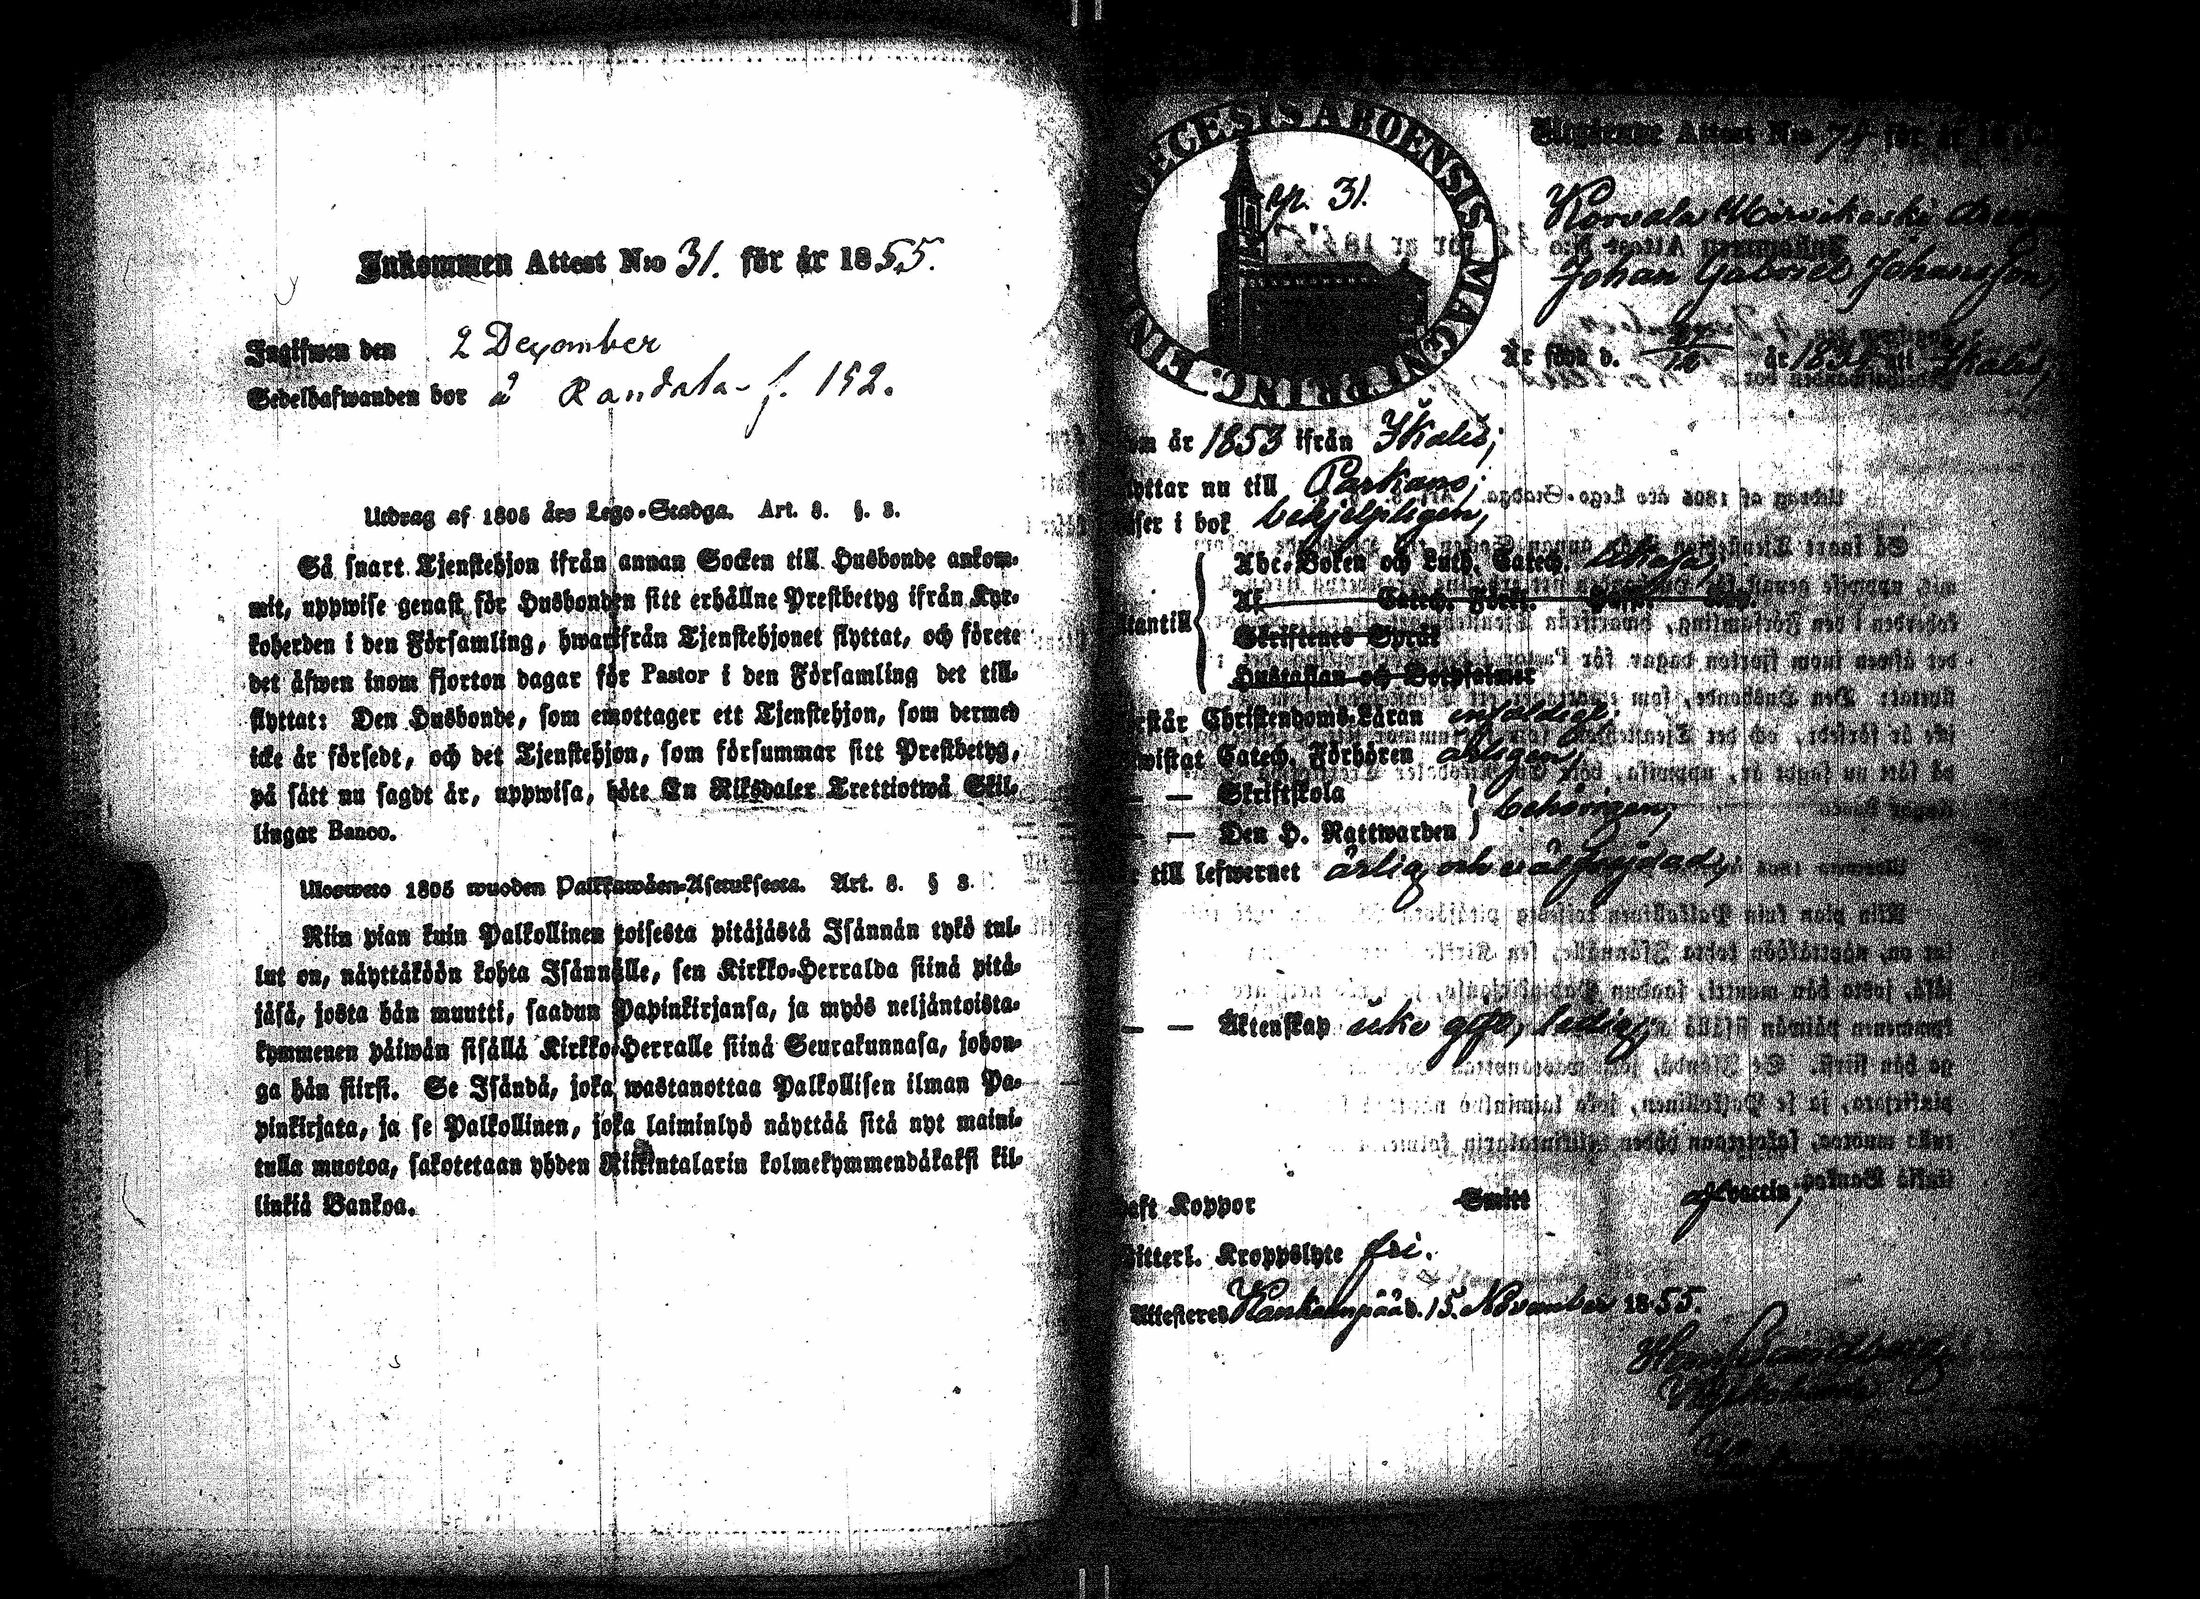 Inkommen Attest N:o 31. för år 1855.
Ingifwen den 2 December
Sedelhafwanden bor å Randala f. 152.
Utdrag af 1805 års Lego-Stadga. Art. 8. §. 8.
Så snart Tjenstehjon ifrån annan Socken till Husbonde ankom-
mit, uppwise genast för Husbonden sitt erhållne Prestbetyg ifrån Kyr-
koherden i den Församling, hwarifrån Tjenstehjonet flyttat, och förete
det äfwen inom fjorton dagar för Pastor i den Församling det till-
flyttat: Den Husbonde, som emottager ett Tjenstehjon, som dermed
icke är försedt, och det Tjenstehjon, som försummar sitt Prestbetyg,
på sätt nu sagdt är, uppwisa, böte En Riksdaler Trettiotwå Skil-
lingar Banco.
Ulosweto 1805 wuoden Palkkawäen-Asetuksesta. Art. 8. § 8.
Niin pian kuin Palkollinen toisesta pitäjästä Isännän tykö tul-
lut on, näyttäköön kohta Isännälle, sen Kirkko-Herralda siinä pitä-
jäsä, josta hän muutti, saadun Papinkirjansa, ja myös neljäntoista-
kymmenen päiwän sisällä Kirkko-Herralle siinä Seurakunnasa, johon-
ga hän siirsi. Se Isändä, joka wastanottaa Palkollisen ilman Pa-
pinkirjata, ja se Palkollinen, joka laiminlyö näyttää sitä nyt maini-
tulla muotoa, sakotetaan yhden Riikintalarin kolmekymmendäkaksi kil-
linkiä Bankoa.
DIECESIS ABOENSIS MAGNI PRINC. FIN
N. 31.
Utgifwne Attest N:o 78 för år 18
Korvala
Johan Gabriel Johansson,
Är född d. /10 år 183 uti Ikalis,
om år 1853 ifrån Ikalis,
yttar nu till Parkano,
äser i bok behjelpligen,
Abc-Boken och Luth. Catech.
Af Catech. Förkl. Hust. Dav.
tantill Skriftenes Språk
Hustaflan och Botpsalmer
rstår Christendoms-Läran enfaldigt;
wistat Catech. Förhören årligen,
— — Skriftskola
— — Den H. Nattwarden behörigen,
till lefwernet ärlig och wälfrejdad,
— — Äktenskap icke gift, ledig,
aft Koppor Smitt af vaccin,
itterl. Kroppslyte fri.
Attesteres Kankaanpää d. 15 November 1855.